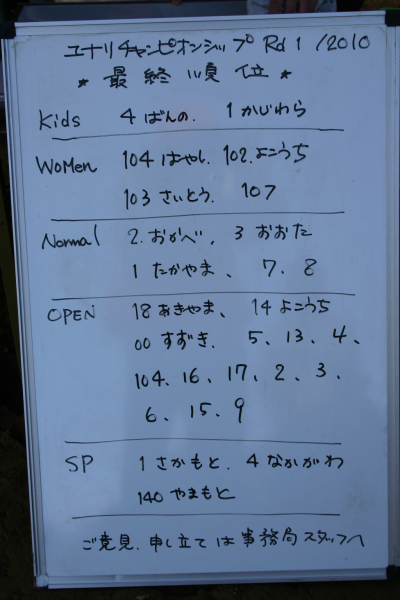 ユナリチャンピオンシップ Rd 1 /2010
★ 最終順位 ★
Kids 4 ばんの. 1 かじわら
WoMen 104 はやし. 102. よこうち
103 さいとう. 107
Normal 2. おかべ, 3 おおた
1 たかやま、 7. 8
OPEN 18 あきやま、 14 よこうち
00 すずき. 5、13、4、
104、16、17、2、3、
6、15、9
SP 1 さかもと. 4 なかがわ
140 やまもと
ご意見. 申し立ては事務局スタッフへ